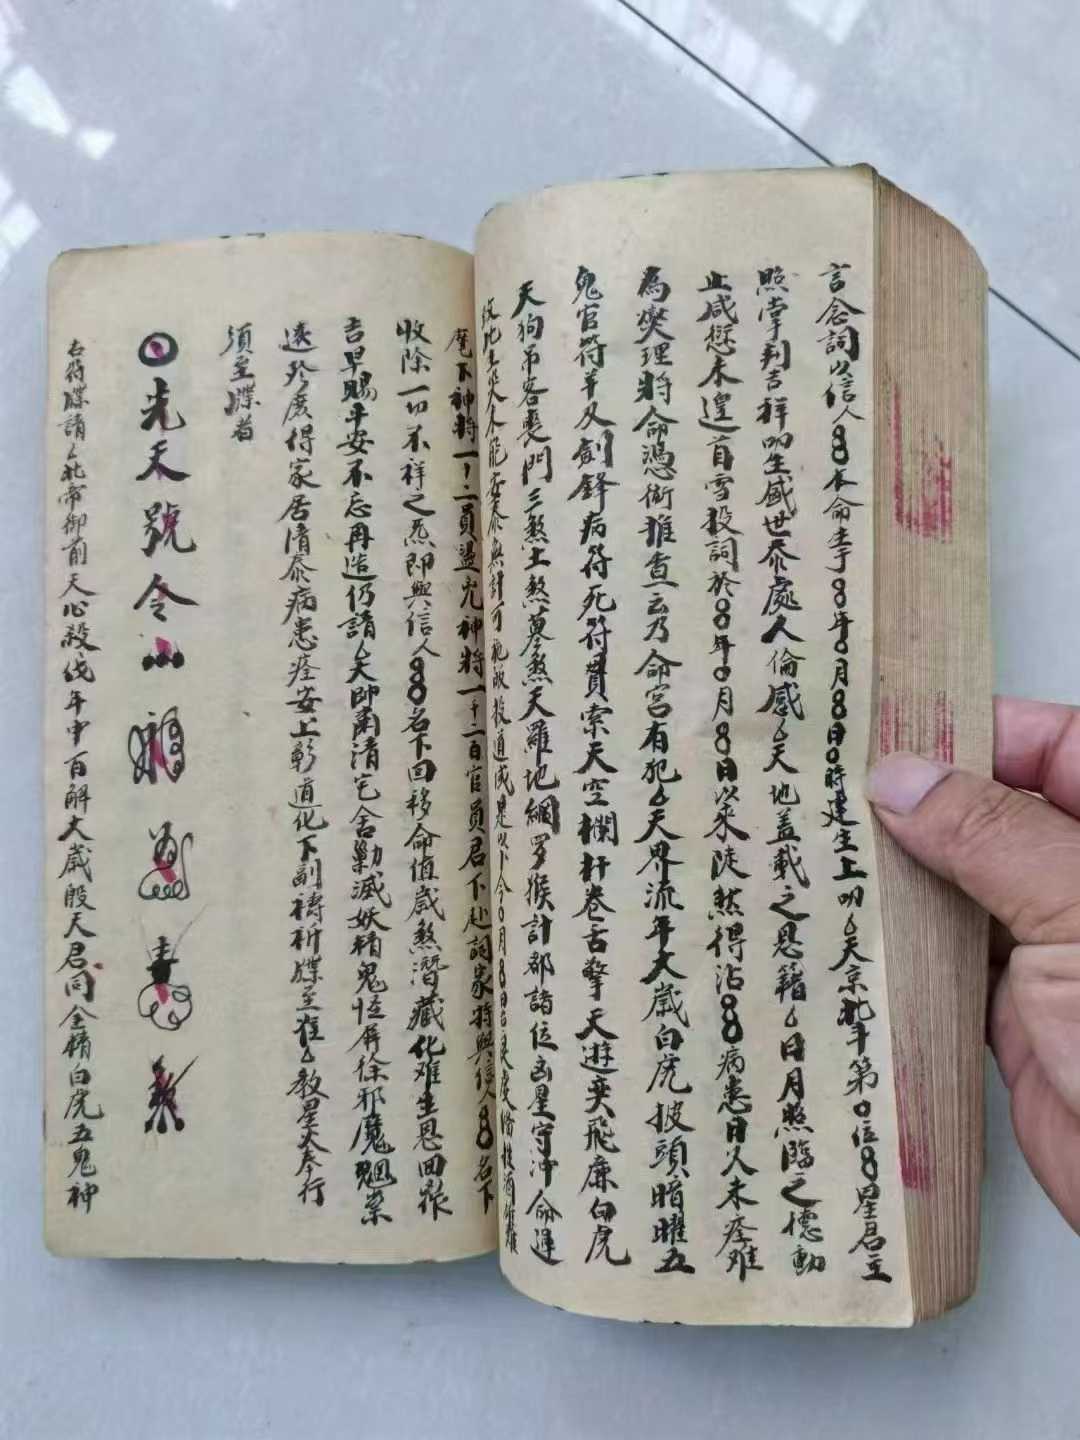 言念詞以信人〇〇本命生于〇年〇月〇日〇時建生上叩天京北斗第〇位〇星君主
照掌判吉祥叩生盛世泰處人倫感天地蓋載之恩籍日月照臨之德動
止咸愆未遑首雪投詞於〇年〇月〇日以來陡然得沾〇〇病患日久未痊难
為爕理將命憑術推查云乃命宮有犯天界流年大歲白虎披頭暗曜五
鬼官符羊刃劍鋒病符死符貫索天空欄杆卷舌擎天遊奕飛廉白虎
天狗吊客喪門三煞土煞墓煞天羅地網罗猴計都諸位凶星守冲命運
不能安泰無計可施投道是以卜今〇月〇日
麾下神將一十二員 神將一千二百官員君下赴詞家將與信人〇名下
收除一切不祥之炁即與信人〇〇名下回移命值歲煞潛藏化难生恩回作
吉早賜平安不忘再造仍請天師肅清宅舍勦滅妖精鬼怪屏除邪魔魍
遠 廣得家居清泰病患痊安上彰道化下副禱祈牒至准教星火奉行
須至牒者
先天號令
右符牒請北帝御前天心殺伐年中百解大歲殷天君同金精白虎五鬼神